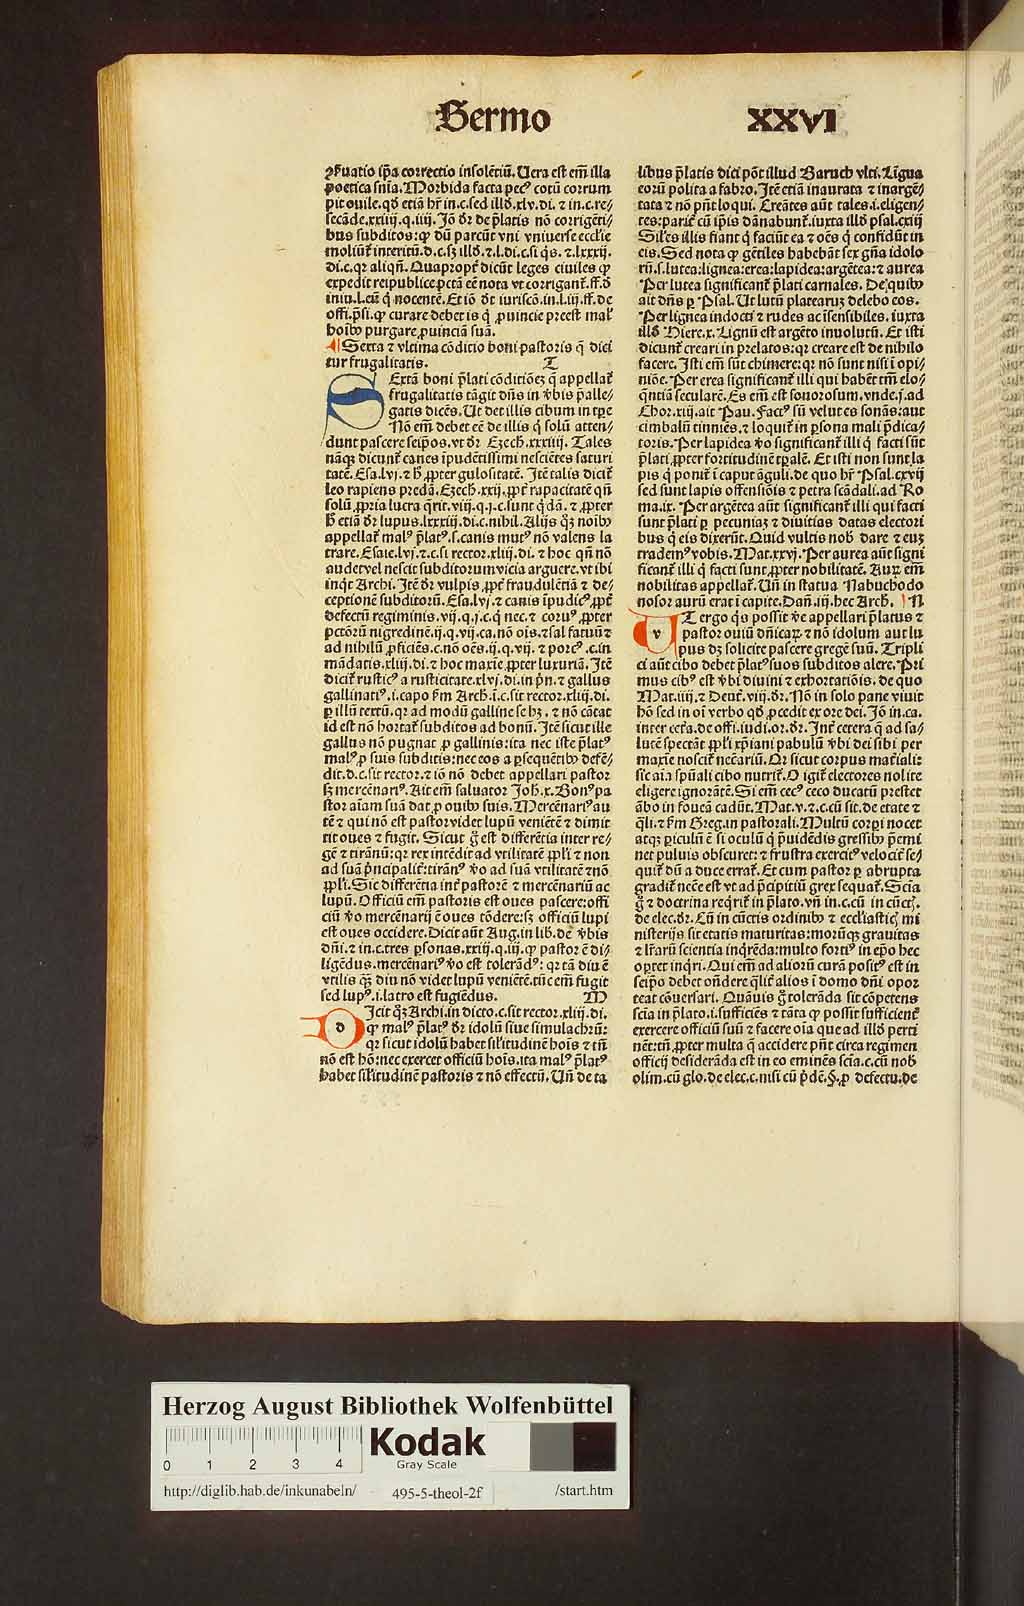 Sermo XXVI
ꝯſeruatio ip̄a correctio inſolētiū. Uera eſt em̄ illa
poetica ſn̄ia. Morbida facta pecꝰ totū corrum
pit ouile. qd̓ etiā hr̄ in.c. ſed illd̓.xlv.di. ⁊ in.c. re⸗
ſecāde.xxiiij.q.iij. Iō dr̄ de p̄latis nō corrigēti⸗
bus ſubditos: ꝙ dū parcūt vni vniuerſe eccl̓ie
moliūt̄ interitū.d.c.ſꝫ illd̓.⁊.l.di.c.ſi q̄s.⁊.lxxxij.
di.c. qꝛ aliqn̄. Quapropt̄ dicūt leges ciuiles ꝙ
expedit reipublice pctā eē nota vt corrigant̄.ff.d̓
iniu.l.eū q̄ nocentē. Et iō dt̄ iuriſcō.in.l.iij.ff.de
offi.p̄ſi. ꝙ curare debet is q̄ ꝓuincie preeſt malꝭ
hoībꝰ purgare ꝓuinciā ſuā.
¶ Sexta ⁊ vltima cōditio boni paſtoris q̄ dici
tur frugalitatis. L
SExtā boni p̄lati cōditiōeꝫ q̄ appellat̄
frugalitatis tāgit dn̄s in v̓bis p̄alle⸗
gatis dicēs. Ut det illis cibum in tꝑe
Nō em̄ debet eē de illis q̄ ſolū atten⸗
dunt paſcere ſeip̄os. vt dr̄ Ezech̓.xxxiiij. Tales
nāqꝫ dicunt̄ canes īpudētiſſimi neſciētes ſaturi
tatē. Eſa.lvj. ⁊ h̓ ꝓpter guloſitatē. Itē talis dicit̄
leo rapiens predā. Ezech̓.xxij. ꝓpt̄ rapacitatē qn̄
ſolū ꝓpria lucra q̄rit.viij.q.j.c. ſunt q̄dā. ⁊ ꝓpter
h̓ etiā dr̄ lupus.lxxxiij.di.c.nihil. Alijs qꝫ noībꝰ
appellat̄ malꝰ p̄latꝰ.ſ. canis mutꝰ nō valens la
trare. Eſaie.lvj.⁊.c.ſi rector.xliij.di. ⁊ hoc qn̄ nō
audet vel neſcit ſubditorum vicia arguere. vt ibi
inqt̄ Archi. Itē dr̄ vulpis ꝓpt̄ fraudulētiā ⁊ de⸗
ceptionē ſubditorū. Eſa.lvj. ⁊ canis īpudicꝰ ꝓpt̄
defectū regiminis.vij.q.j.c. q̄ nec. ⁊ coruꝰ ꝓpter
pctōrū nigredinē.ij.q.vij.ca.nō oīs. ⁊ ſal fatuū ⁊
ad nihilū ꝓficiēs.c.nō oēs.ij.q.vij. ⁊ porcꝰ.c.in
mādatis.xliij.di. ⁊ hoc maxīe ꝓpter luxuriā. Itē
dicit̄ ruſticꝰ a ruſticitate.xlvj.di.in p̄n. ⁊ gallus
gallinatiꝰ.i.capo ẜm Arch̓.ī.c.ſit rector.xliij.di.
ꝑ illū textū. qꝛ ad modū galline ſe hꝫ. ⁊ nō cātat
id eſt nō hortat̄ ſubditos ad bonū. Itē ſicut ille
gallus nō pugnat ꝓ gallinis: ita nec iſte p̄latꝰ
malꝰ ꝓ ſuis ſubditis: nec eos a ꝑſequētibꝰ defē⸗
dit.d.c.ſit rector. ⁊ iō nō debet appellari paſtor
ſꝫ mercenariꝰ. Ait em̄ ſaluator Joh̓.x. Bonꝰ pa
ſtor aīam ſuā dat ꝓ ouibꝰ ſuis. Mercēnariꝰ au
tē ⁊ qui nō eſt paſtor videt lupū veniētē ⁊ dimit
tit oues ⁊ fugit. Sicut g̊ eſt differētia inter re⸗
gē ⁊ tirānū: qꝛ rex intēdit ad vtilitatē ꝓpl̓i ⁊ non
ad ſuā p̄ncipalit̄: tirānꝰ v̓o ad ſuā vtilitatē ⁊ nō
ꝓpl̓i. Sic differentia int̄ paſtorē ⁊ mercēnariū ac
lupū. Officiū em̄ paſtoris eſt oues paſcere: offi
ciū v̓o mercēnarij ē oues tōdere: ſꝫ officiū lupi
eſt oues occidere. Dicit aūt Aug.in lib.de v̓bis
dn̄i. ⁊ in.c.tres ꝑſonas.xxiij.q.iij. ꝙ paſtor ē di⸗
ligēdus. mercēnariꝰ v̓o eſt tolerādꝰ: qꝛ tā diu ē
vtilis qꝫ diu nō videt lupū veniētē. tūc em̄ fugit
ſed lupꝰ.i.latro eſt fugiēdus. M
DIcit qꝫ Archi.in dicto.c.ſit rector.xliij.di.
ꝙ malꝰ p̄latꝰ dr̄ idolū ſiue ſimulachrū:
qꝛ ſicut idolū habet ſil̓itudinē hoīs ⁊ tn̄
nō eſt hō: nec exercet officiū hoīs. ita malꝰ p̄latꝰ
habet ſil̓itudinē paſtoris ⁊ nō effectū. Un̄ de ta
libus p̄latis dici pōt illud Baruch vlti. Lingua
eorū polita a fabro. Itē etiā inaurata ⁊ inargē⸗
tata ⁊ nō pn̄t loqui. Creātes aūt tales.i.eligen⸗
tes: parit̄ cū ip̄is dānabunt̄. iuxta illd̓ pſal.cxiij
Sil̓es illis fiant q̄ faciūt ea ⁊ oēs q̄ confidūt in
eis. Sed nota ꝙ gētiles habebāt ſex gn̄a idolo
rū.ſ.lutea: lignea: erea: lapidea: argētea: ⁊ aurea
Per lutea ſignificant̄ p̄lati carnales. De quibꝰ
ait dn̄s ꝑ Pſal. Ut lutū platearuꝫ delebo eos.
Per lignea indocti ⁊ rudes ac īſenſibiles. iuxta
illd̓ Hiere.x. Lignū eſt argēto inuolutū. Et iſti
dicunt̄ creari in prelatos: qꝛ creare eſt de nihilo
facere. Iſti em̄ ſūt chimere: qꝛ nō ſunt niſi ī opi⸗
niōe. Per erea ſignificant̄ illi qui habēt tm̄ elo⸗
q̄ntiā ſecularē. Es em̄ eſt ſonoroſum. vnde.j.ad
Chor.xiij.ait Pau. Factꝰ ſū velut es ſonās: aut
cimbalū tinniēs. ⁊ loquit̄ in ꝑſona mali p̄dica⸗
toris. Per lapidea v̓o ſignificant̄ illi q̄ facti ſūt
p̄lati ꝓpter fortitudinē tꝑalē. Et iſti non ſunt la
pis q̄ ponit̄ ī caput āguli. de quo hr̄ Pſal.cxvij
ſed ſunt lapis offenſiōis ⁊ petra ſcādali. ad Ro
ma.ix. Per argētea aūt ſignificant̄ illi qui facti
ſunt p̄lati ꝑ pecuniaꝫ ⁊ diuitias datas electori
bus q̄ eis dixerūt. Quid vultis nob̓ dare ⁊ euꝫ
trademꝰ vobis. Mat.xxvj. Per aurea aūt ſigni
ficant̄ illi q̄ facti ſunt ꝓpter nobilitatē. Auꝝ em̄
nobilitas appellat̄. Un̄ in ſtatua Nabuchodo
noſor aurū erat ī capite. Dan̄.iij. hec Arch̓. N
UT ergo q̄s poſſit v̓e appellari p̄latus ⁊
paſtor ouiū dn̄icaꝝ ⁊ nō idolum aut lu
pus dꝫ ſolicite paſcere gregē ſuū. Tripli
ci aūt cibo debet p̄latꝰ ſuos ſubditos alere. Pri
mus cibꝰ eſt v̓bi diuini ⁊ exhortatiōis. de quo
Mat.iiij. ⁊ Deut̄.viij. dr̄. Nō in ſolo pane viuit
hō ſed in oī verbo qd̓ ꝓcedit ex ore dei. Iō in.ca.
inter cet̄a. de offi.iudi.or. dr̄. Int̄ cetera q̄ ad ſa⸗
lutē ſpectāt ꝓpl̓i xp̄iani pabulū v̓bi dei ſibi per
maxīe noſcit̄ necāriū. Qꝛ ſicut corpus mat̄iali:
ſic aīa ſpūali cibo nutrit̄. O igit̄ electores nolite
eligere ignorātē. Si em̄ cecꝰ ceco ducatū preſtet
ābo in foueā cadūt. Mat.v. ⁊.c.cū ſit.de etate ⁊
q̄li. ⁊ ẜm Greg.in paſtorali. Multū corꝑi nocet
atqꝫ ꝑiculū ē ſi oculū q̄ p̄uidēdis greſſibꝰ p̄emi
net puluis obſcuret: ⁊ fruſtra exercitꝰ velocit̄ ſe⸗
quit̄ dū a duce errat̄. Et cum paſtor ꝑ abrupta
gradit̄ nc̄ee eſt vt ad p̄cipitiū grex ſequat̄. Scīa
g̊ ⁊ doctrina reqrit̄ in p̄lato. vn̄ in.c.cū in cūctꝭ.
de elec. dr̄. Cū in cūctis ordinibꝰ ⁊ eccl̓iaſticꝭ mi
niſterijs ſit etatis maturitas: morūqꝫ grauitas
⁊ lr̄arū ſcientia inqrēda: multo fortiꝰ in ep̄o hec
oꝑtet inqri. Qui em̄ ad aliorū curā poſitꝰ eſt in
ſeip̄o debet oñdere qlit̄ alios ī domo dn̄i opor
teat cōuerſari. Quāuis g̊ tolerāda ſit cōpetens
ſcīa in p̄lato.i.ſufficiēs ⁊ tāta ꝙ poſſit ſufficient̄
exercere officiū ſuū ⁊ facere oīa que ad illd̓ perti
nēt: tn̄ ꝓpter multa q̄ accidere pn̄t circa regimen
officij deſiderāda eſt in eo eminēs ſcīa.c.cū nob̓
olim. cū glo.de elec.c.niſi cū p̄dē.§.ꝓ defectu.de
Herzog August Bibliothek Wolfenbüttel
0 1 2 3 4
Kodak
Gray Scale
http://diglib.hab.de/inkunabeln/ 495-5-theol-2f /start.htm